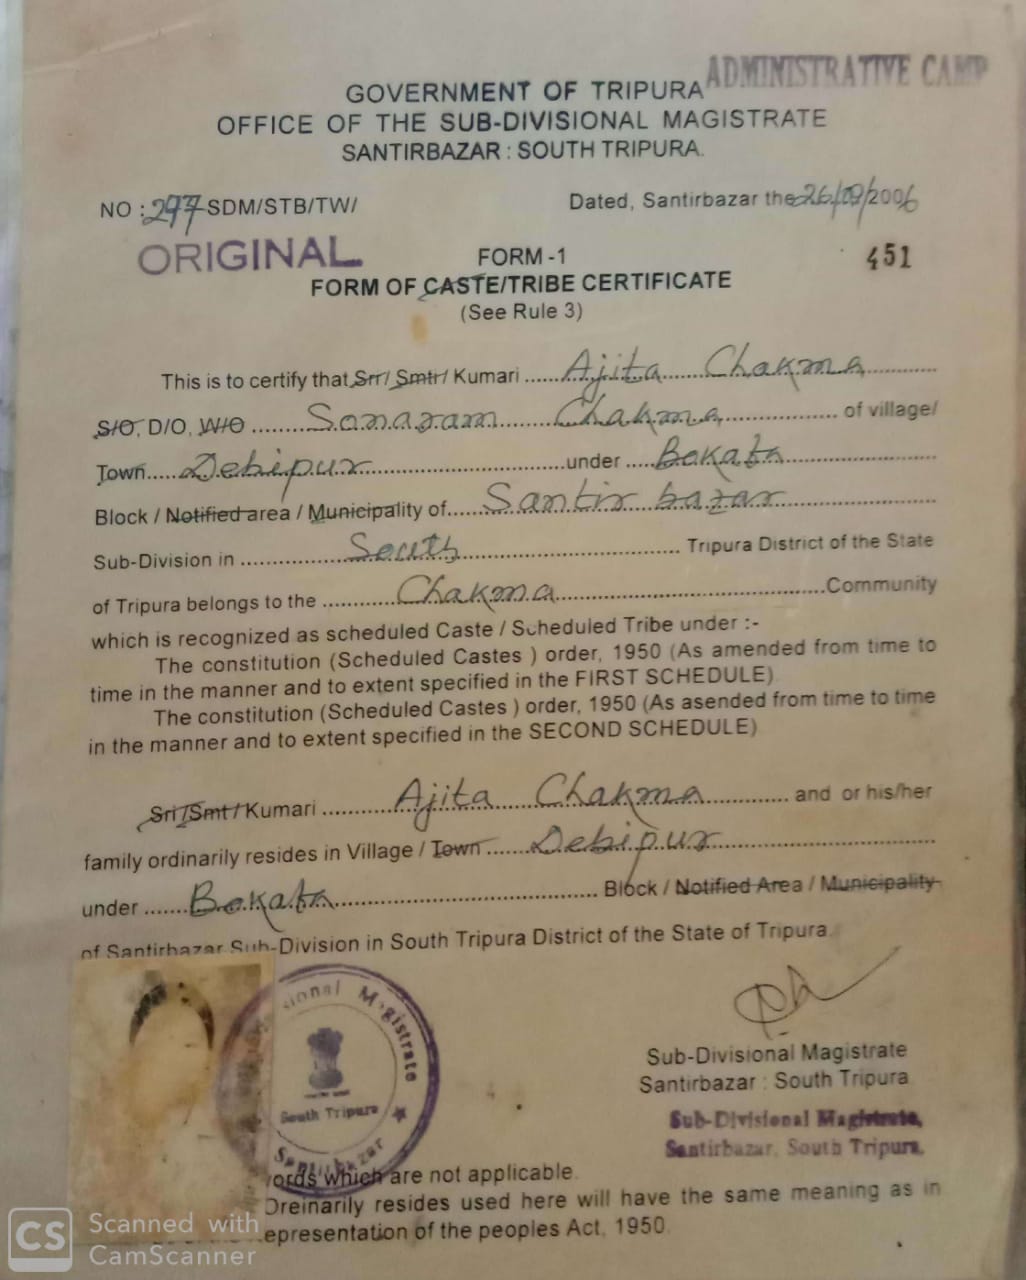 ADMINISTRATIVE CAMP
GOVERNMENT OF TRIPURA
OFFICE OF THE SUB-DIVISIONAL MAGISTRATE
SANTIRBAZAR : SOUTH TRIPURA.
NO : 297 SDM/STB/TW/ Dated, Santirbazar the 26/09/2006
ORIGINAL FORM -1 451
FORM OF CASTE/TRIBE CERTIFICATE
(See Rule 3)
This is to certify that Sri/ Smti/ Kumari ..... Ajita Chakma
S/O, D/O, W/O ......... Sonaram Chakma ............... of village/
Town..... Debipur ........................under ..... Bokafa
Block / Notified area / Municipality of...... Santirbazar
Sub-Division in .............. South ........................ Tripura District of the State
of Tripura belongs to the ............ Chakma ........................Community
which is recognized as scheduled Caste / Scheduled Tribe under :-
The constitution (Scheduled Castes ) order, 1950 (As amended from time to
time in the manner and to extent specified in the FIRST SCHEDULE)
The constitution (Scheduled Castes ) order, 1950 (As asended from time to time
in the manner and to extent specified in the SECOND SCHEDULE)
Sri/Smt/ Kumari ............ Ajita Chakma ............ and or his/her
family ordinarily resides in Village / Town ....... Debipur
under ....... Bokafa ................................ Block / Notified Area / Municipality
of Santirbazar Sub-Division in South Tripura District of the State of Tripura.
sional Magistrate
South Tripura
Santirbazar
Sub-Divisional Magistrate
Santirbazar : South Tripura
Sub-Divisional Magistrate,
Santirbazar, South Tripura.
ords which are not applicable.
Oreinarily resides used here will have the same meaning as in
epresentation of the peoples Act, 1950.
CS Scanned with
CamScanner